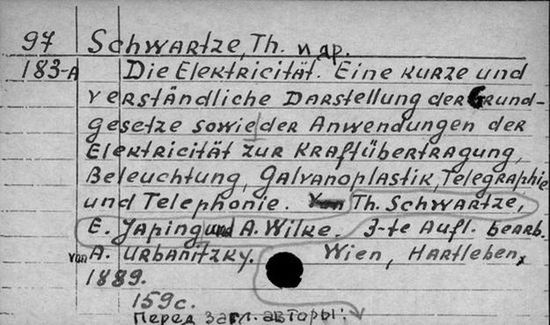 97 Schwartze, Th. и др.
183-A Die Elektricität. Eine kurze und
verständliche Darstellung der Grund-
gesetze sowie der Anwendungen der
Elektricität zur Kraftübertragung,
Beleuchtung, Galvanoplastik, Telegraphie
und Telephonie. Von Th. Schwartze,
E. Japing und A. Wilke. 3-te Aufl. bearb.
von A. Urbanitzky. Wien, Hartleben,
1889.
159 с.
Перед загл. авторы: